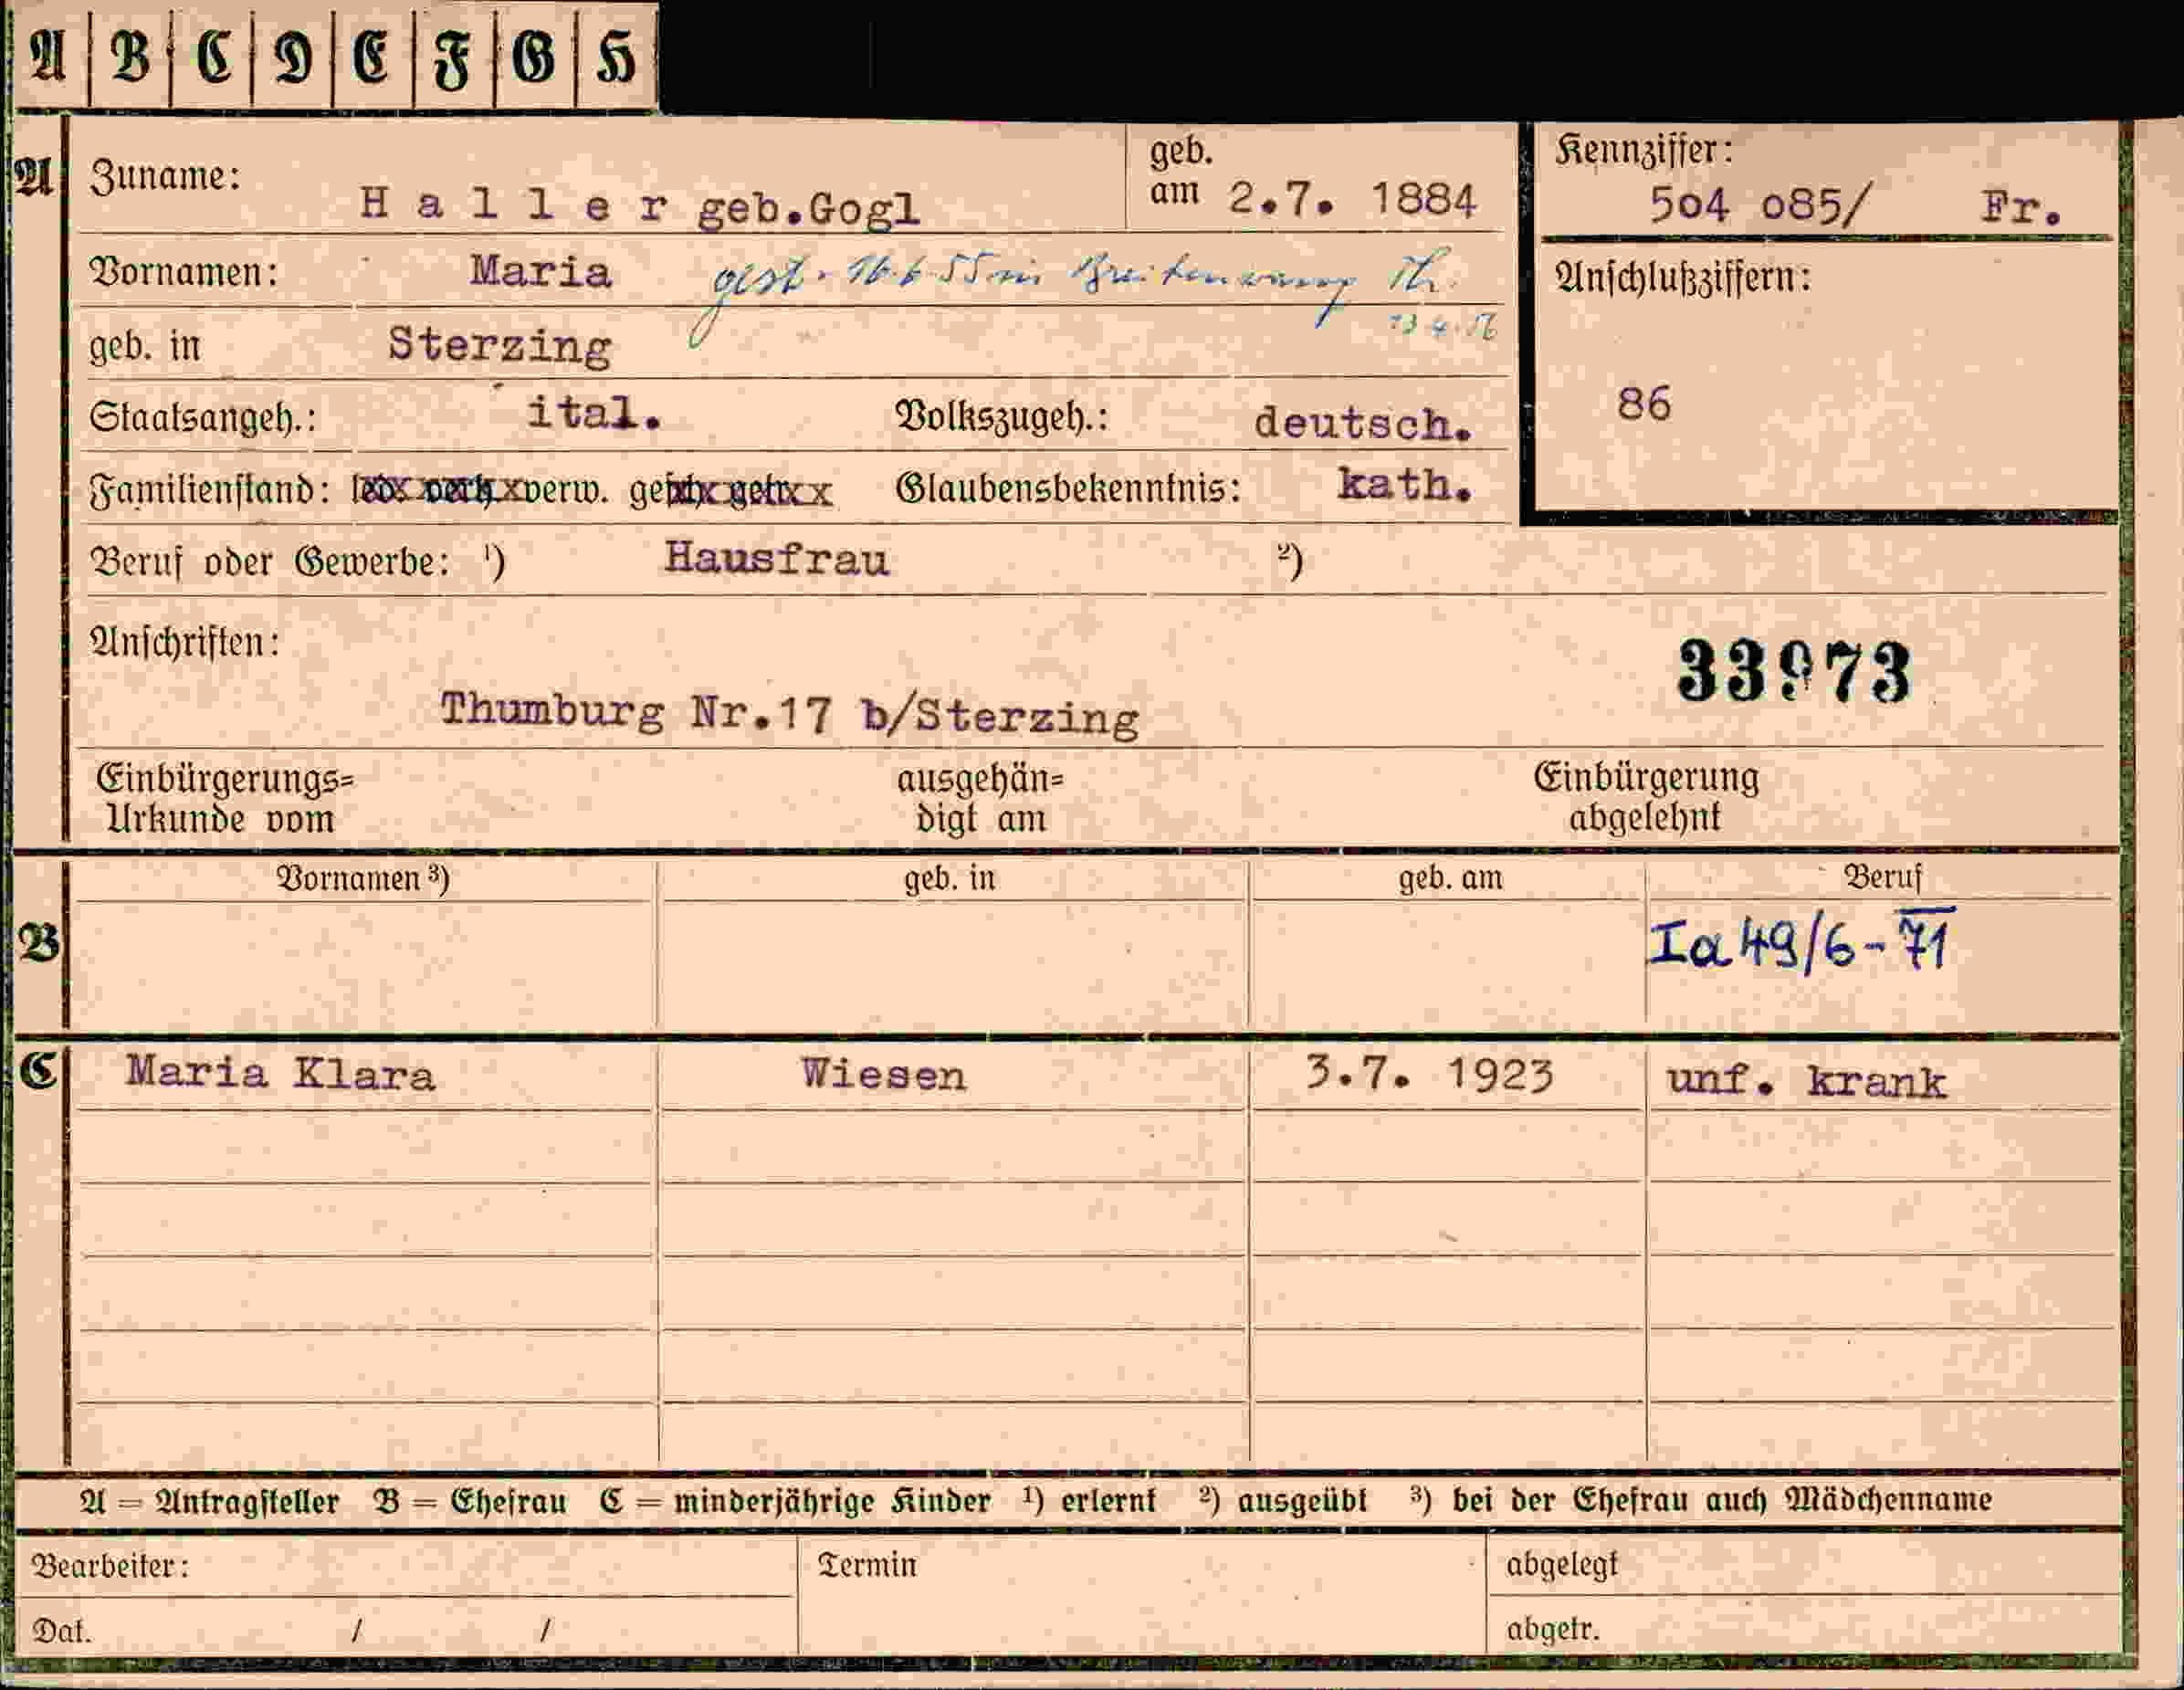 A B C D E F G H
A Zuname: Haller geb.Gogl geb. am 2.7. 1884
Kennziffer: 504 085/ Fr.
Vornamen: Maria gest. 16.6.55 in Breitenwang
Anschlußziffern:
geb. in Sterzing
86
Staatsangeh.: ital. Volkszugeh.: deutsch.
Familienstand: verw. Glaubensbekenntnis: kath.
Beruf oder Gewerbe: ¹) Hausfrau ²)
Anschriften:
33973
Thumburg Nr.17 b/Sterzing
Einbürgerungs= ausgehän= Einbürgerung
Urkunde vom digt am abgelehnt
Vornamen ³) geb. in geb. am Beruf
B Ia 49/6-71
C Maria Klara Wiesen 3.7. 1923 unf. krank
A = Antragsteller B = Ehefrau C = minderjährige Kinder ¹) erlernt ²) ausgeübt ³) bei der Ehefrau auch Mädchenname
Bearbeiter: Termin abgelegt
Dat. / / abgetr.